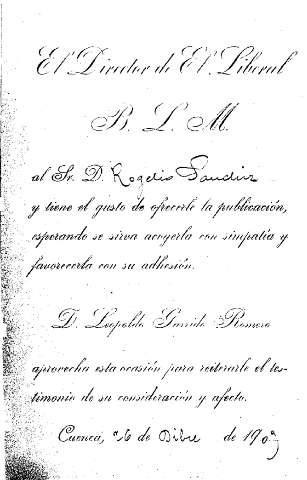 El Director de El Liberal
B. L. M.
al Sr. D. Rogelio Sanchiz
y tiene el gusto de ofrecerle la publicación,
esperando se sirva acogerla con simpatía y
favorecerla con su adhesión.
D. Leopoldo Garrido Romero
aprovecha esta ocasión para reiterarle el tes-
timonio de su consideración y afecto.
Cuenca, 26 de Dibre de 190